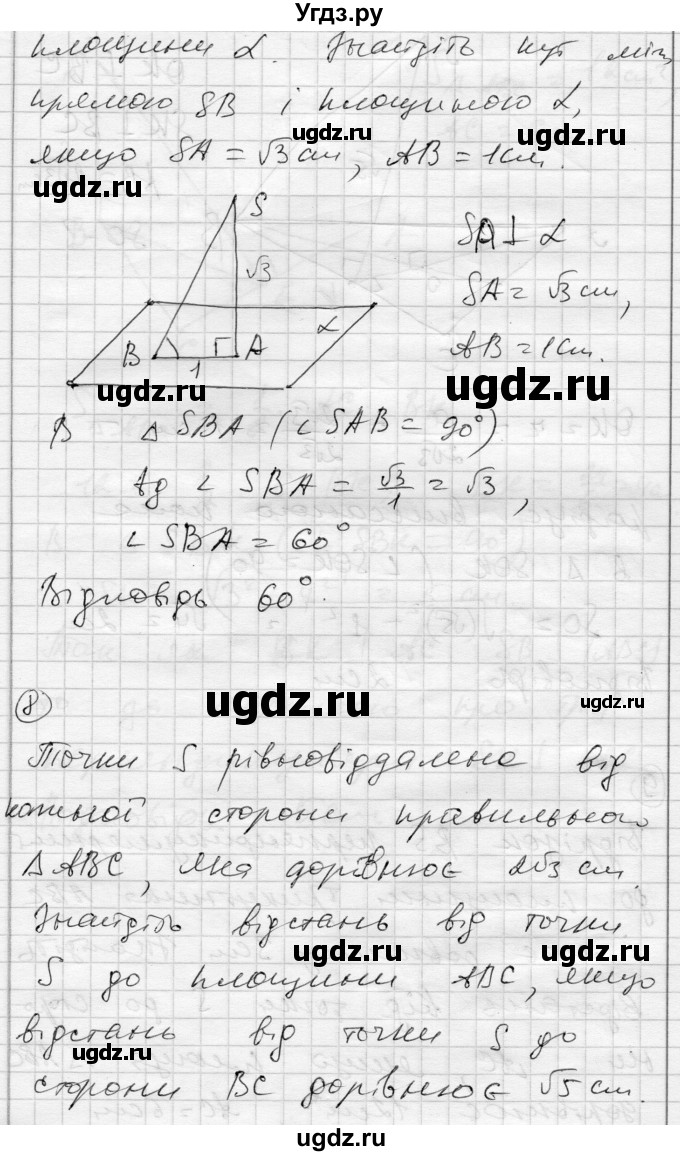 Угдз.ру
площини α. Знайдіть кут між
прямою SB і площиною α,
якщо SA = √3 см, AB = 1 см.
ugdz.ru
ugdz.ru
ugdz.ru
S
√3
SA ⊥ α
SA = √3 см,
α
B
1
A
AB = 1 см.
ugdz.ru
ugdz.ru
В △ SBA (∠ SAB = 90°)
tg ∠ SBA = √3/1 = √3,
∠ SBA = 60°
Відповідь 60°.
ugdz.ru
8
Точки S рівновіддалена від
кожної сторони правильного
△ ABC, яка дорівнює 2√3 см.
ugdz.ru
Знайдіть відстань від точки
ugdz.ru
S до площини ABC, якщо
відстань від точки S до
ugdz.ru
сторони BC дорівнює √5 см.
ugdz.ru
ugdz.ru